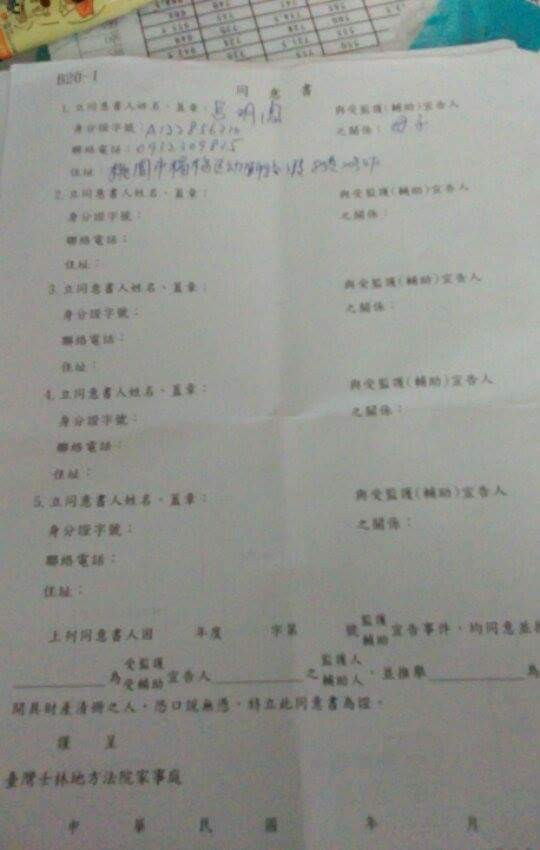 B20-1
同意書
1.立同意書人姓名、蓋章：呂明 與受監護(輔助)宣告人
身分證字號：A122856210 之關係：母子
聯絡電話：0932309815
住址：桃園市楊梅區
2.立同意書人姓名、蓋章： 與受監護(輔助)宣告人
身分證字號： 之關係：
聯絡電話：
住址：
3.立同意書人姓名、蓋章： 與受監護(輔助)宣告人
身分證字號： 之關係：
聯絡電話：
住址：
4.立同意書人姓名、蓋章： 與受監護(輔助)宣告人
身分證字號： 之關係：
聯絡電話：
住址：
5.立同意書人姓名、蓋章： 與受監護(輔助)宣告人
身分證字號： 之關係：
聯絡電話：
住址：
上列同意書人因 年度 字第 號監護輔助宣告事件，均同意並推
為受監護受輔助宣告人 之監護人輔助人，並推舉 為
開具財產清冊之人，恐口說無憑，特立此同意書為證。
謹 呈
臺灣士林地方法院家事庭
中 華 民 國 年 月